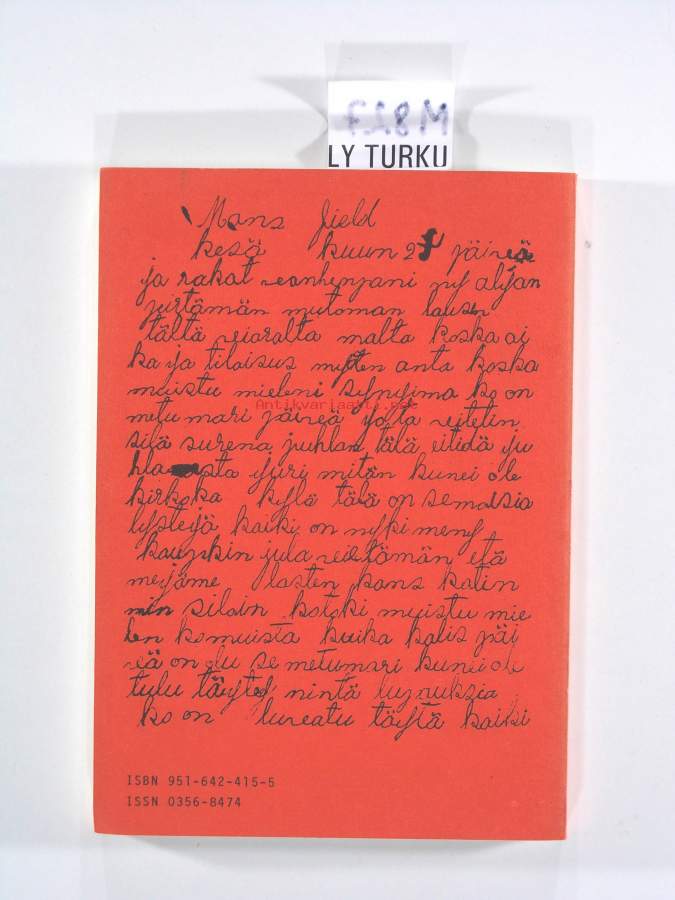 F18M
LY TURKU
Mans field
kesä kuun 2 päiveä
ja rakat vanhenpani nyt alijan
piirtämän mutoman lausen
tältä vioralta malta koska ai
ka ja tilaisus myten anta koska
muistu mieleni synyima ko on
metu mari päiveä jota vietetin
sitä surena juhlan tälä eitidä ju
hla asta ijuri mitän kunei ole
kirkoka kylä tälä on semossia
lysteijä kaiki on nyki meny
kaupukin jula viettämän etä
meijäme lasten kans kotin
min siloin kotoki muistu mie
len komuista kuika kalis päi
veä on olu se metumari kunei ole
tulu täytey nintä lupuksia
ko on luveatu täytä kaiki
Antikvariaatti.net
ISBN 951-642-415-5
ISSN 0356-8474